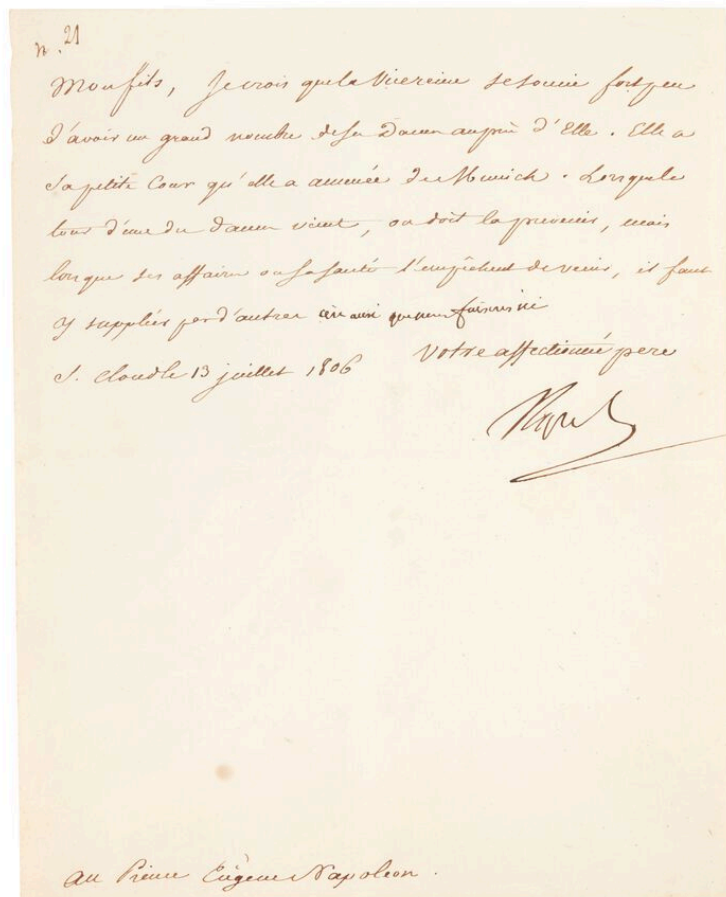 n. 21
Mon fils, Je crois que la Vicereine se soucie fort peu
d'avoir un grand nombre de ses Dames auprès d'Elle. Elle a
sa petite Cour qu'elle a amenée de Munich. Lorsque le
tour d'une des dames vient, on doit la prevenir, mais
lorsque ses affaires ou sa santé l'empêchent de venir, il faut
y suppléer par d'autres ainsi que nous faisons ici
S. Cloud le 13 juillet 1806 Votre affectionné pere
Napol
au Prince Eugene Napoleon.